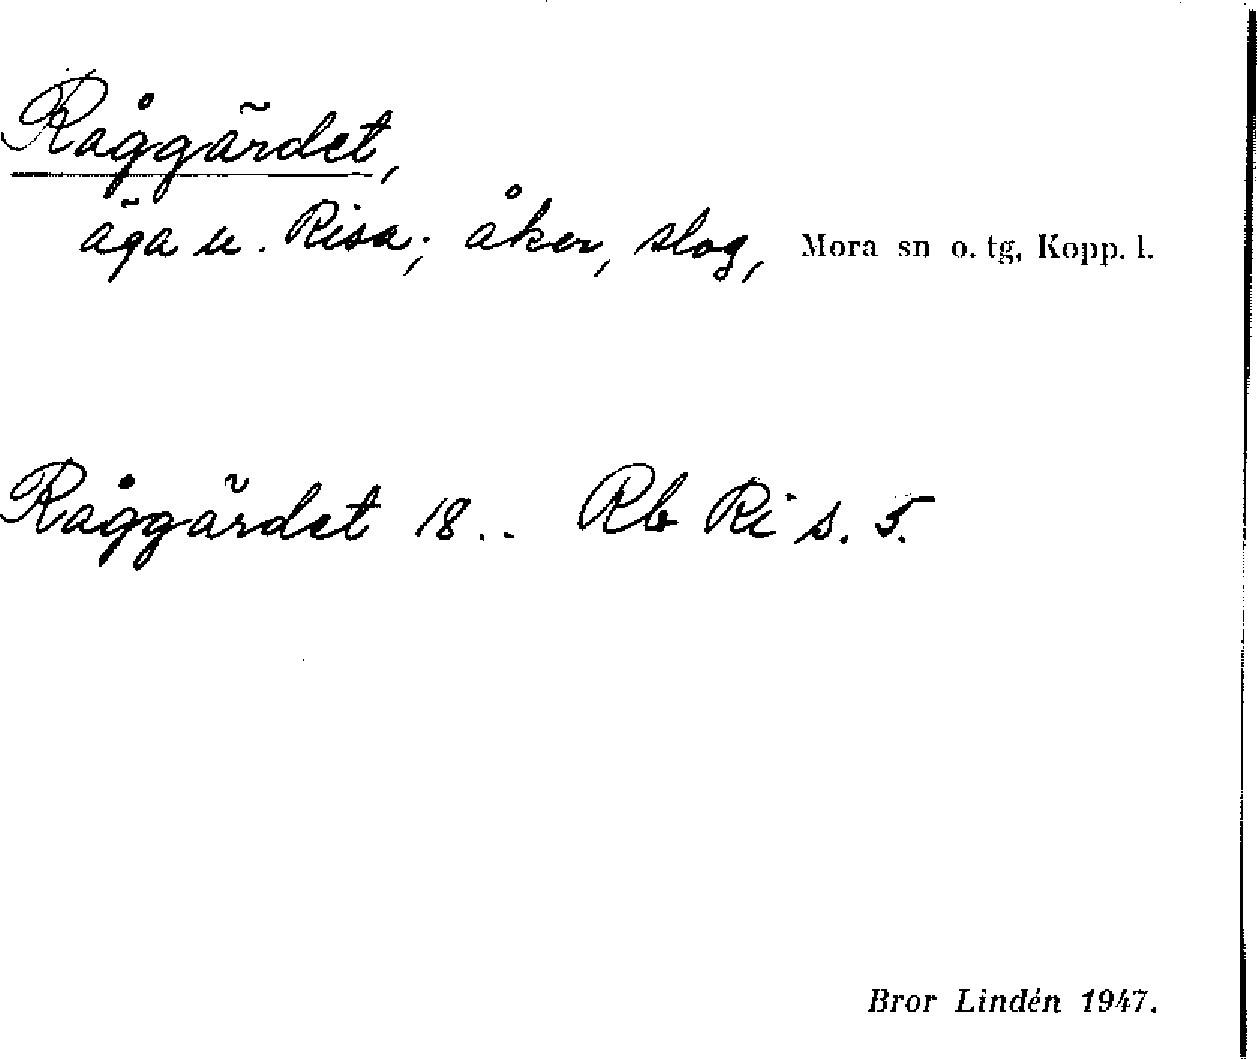 Råggärdet,
äga u. Risa; åker, slog, Mora sn o. tg, Kopp. l.
Råggärdet 18.. Rb Ri s. 5.
Bror Lindén 1947.